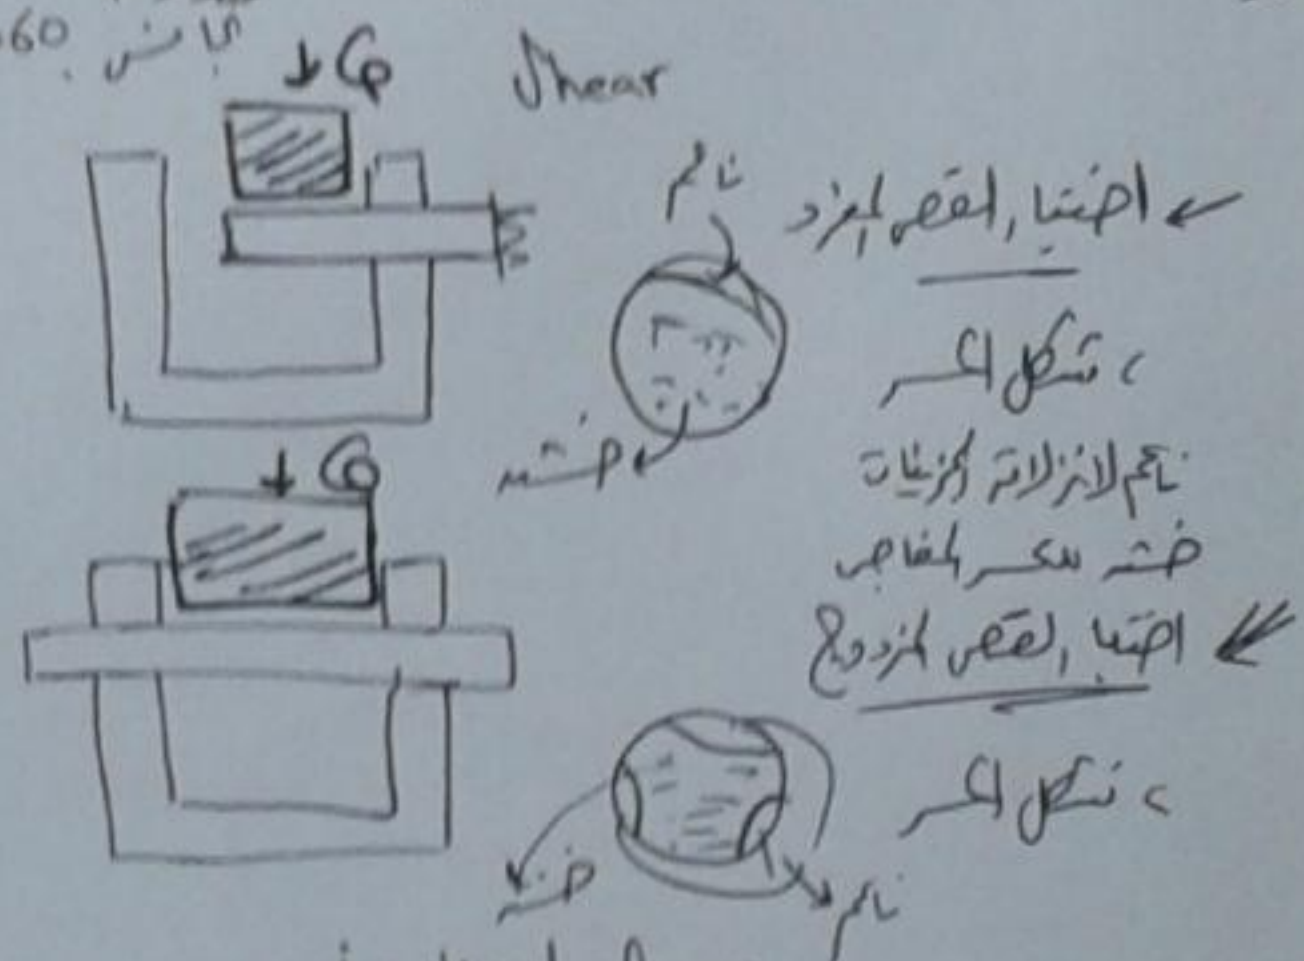 60. تجانس
P
Shear
← اختبار القص المفرد
ناعم
خشن
، شكل الكسر
ناعم لانزلاق الجزيئات
خشن
P
← اختبار القص المزدوج
، شكل الكسر
خشن
ناعم